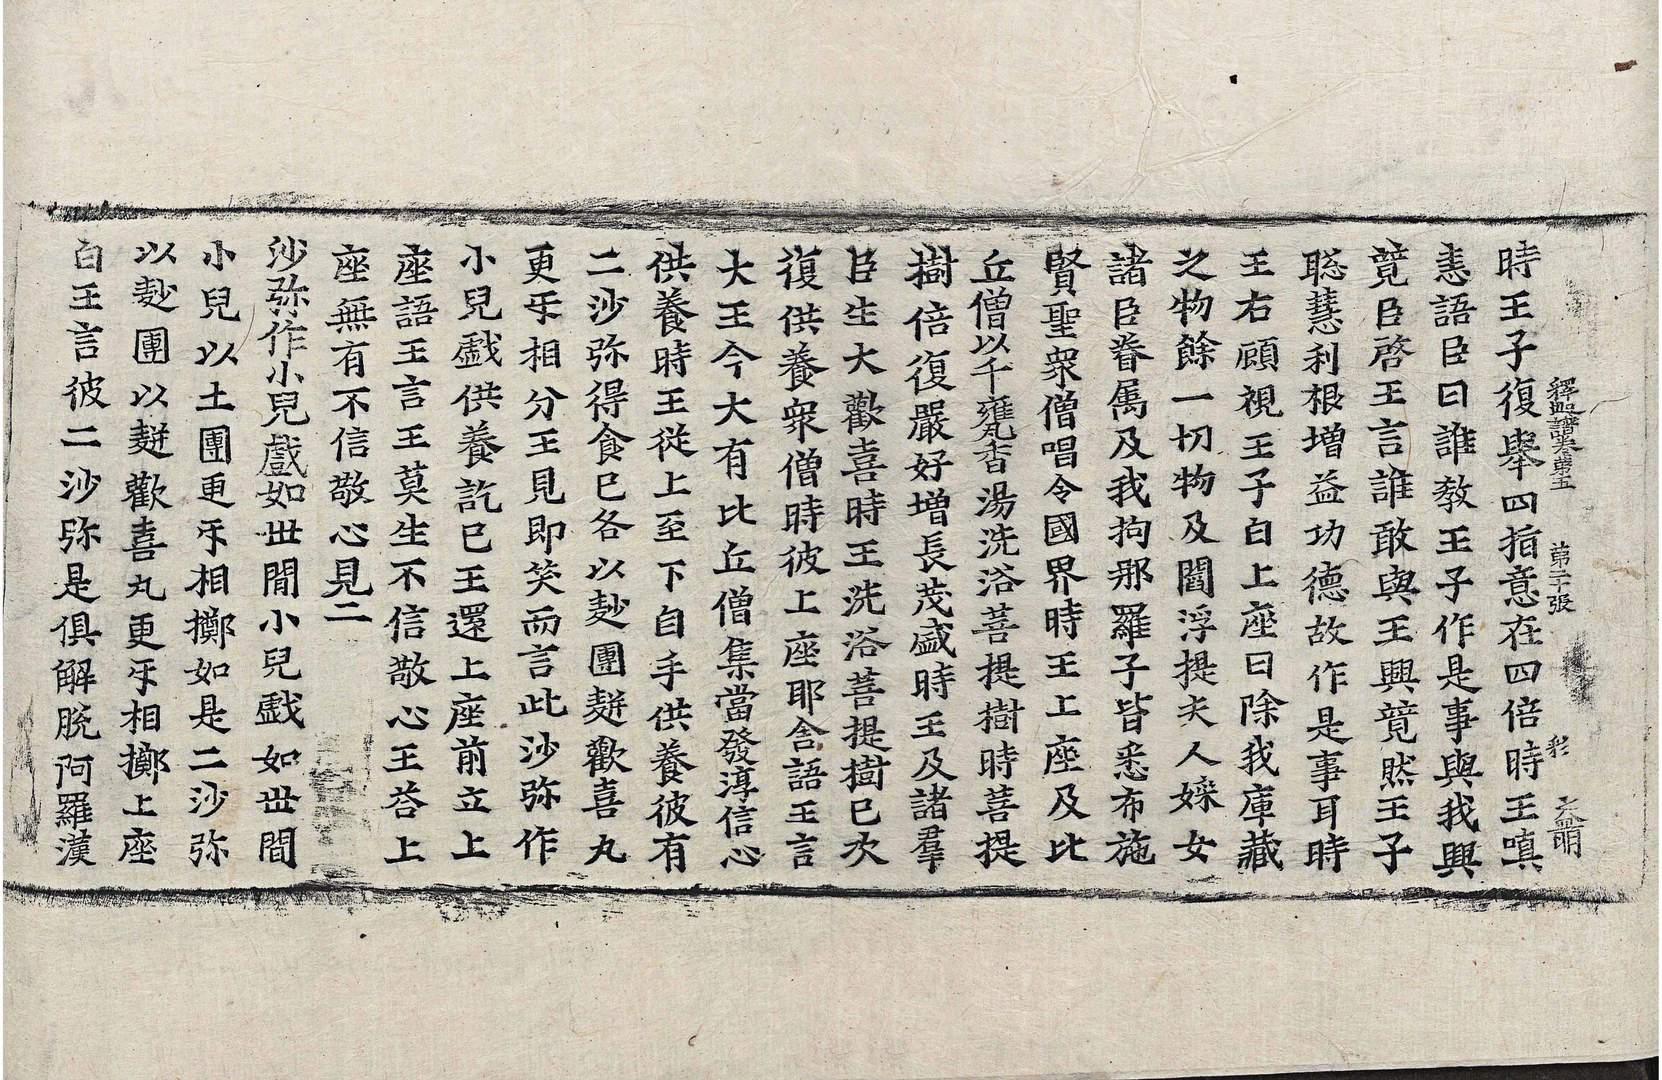 釋迦譜卷第五　第二十張　彩　天明
時王子復舉四指意在四倍時王嗔
恚語臣曰誰教王子作是事與我興
竟臣啓王言誰敢與王興竟然王子
聡慧利根增益功德故作是事耳時
王右顧視王子白上座曰除我庫藏
之物餘一切物及閻浮提夫人婇女
諸臣眷属及我拘那羅子皆悉布施
賢聖衆僧唱令國界時王上座及比
丘僧以千甕香湯洗浴菩提樹時菩提
樹倍復嚴好增長茂盛時王及諸羣
臣生大歡喜時王洗浴菩提樹已次
復供養衆僧時彼上座耶舍語王言
大王今大有比丘僧集當發淳信心
供養時王從上至下自手供養彼有
二沙弥得食已各以麨團麨歡喜丸
更㸦相分王見即笑而言此沙弥作
小兒戲供養訖已王還上座前立上
座語王言王莫生不信敬心王荅上
座無有不信敬心見二
沙弥作小兒戲如世間小兒戲如世間
小兒以土團更㸦相擲如是二沙弥
以麨團以麨歡喜丸更㸦相擲上座
白王言彼二沙弥是俱解脫阿羅漢